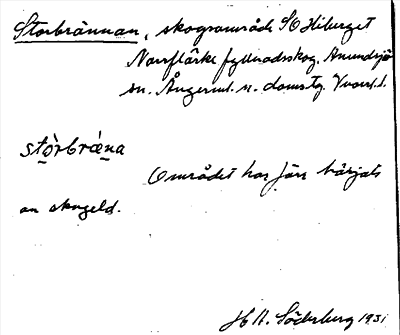 Storbrännan, skogsområde SO Hiberget
Norrflärke fyllnadsskog. Anundsjö
sn. Ångerml. n. domsg. Vnorrl. l.
stòrbrǽna
Området har förr härjats
av skogseld.
H A. Söderberg 1931